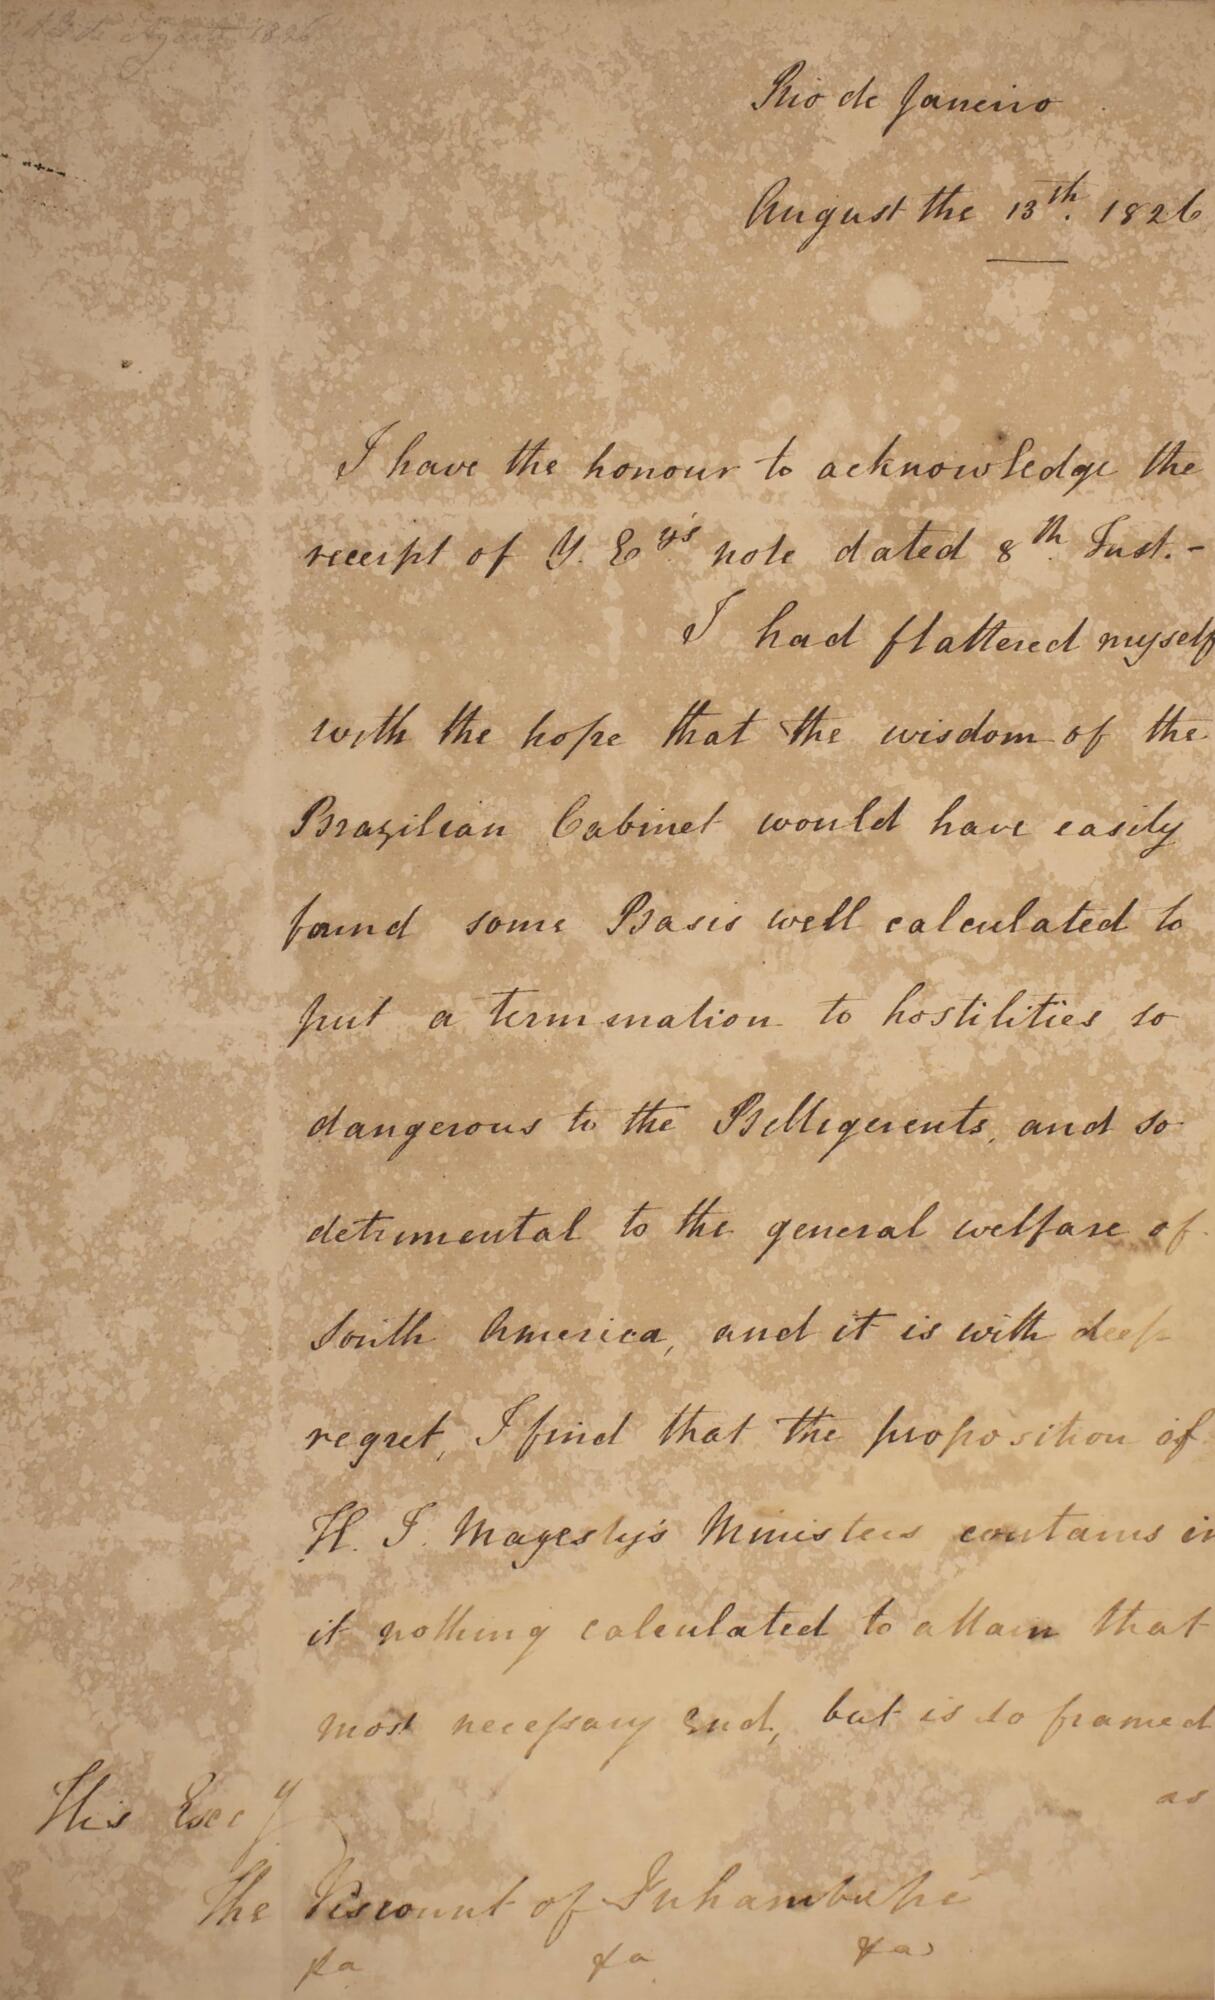 13 de Agosto 1826
Rio de Janeiro
August the 13th. 1826
I have the honour to acknowledge the
receipt of Y. Ey's note dated 8th. Inst.-
I had flattered myself
with the hope that the wisdom of the
Brazilian Cabinet would have easily
found some Basis well calculated to
put a termination to hostilities so
dangerous to the Belligerents, and so
detrimental to the general welfare of
South America, and it is with deep
regret, I find that the proposition of
H. I. Magesty's Ministers contains in
it nothing calculated to attain that
most necessary End, but is so framed
as
His Excy
The Viscount of Inhambupé
&a &a &a